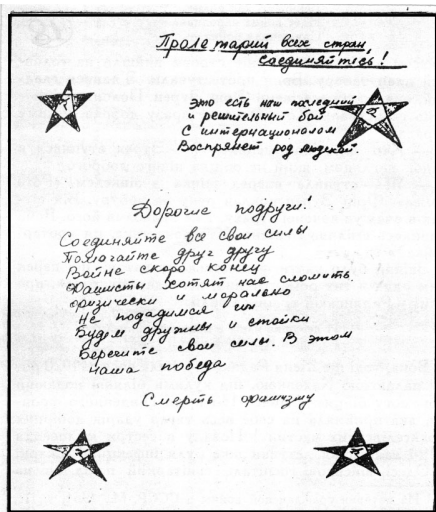 Пролетарий всех стран,
Соединяйтесь!
Это есть наш последний
и решительный бой
С интернационалом
Воспрянет род людской.
Дорогие подруги!
Соединяйте все свои силы
Помогайте друг другу
Войне скоро конец
Фашисты хотят нас сломить
физически и морально
Не подадимся им
Будем дружны и стойки
Берегите свои силы. В этом
наша победа
Смерть фашизму